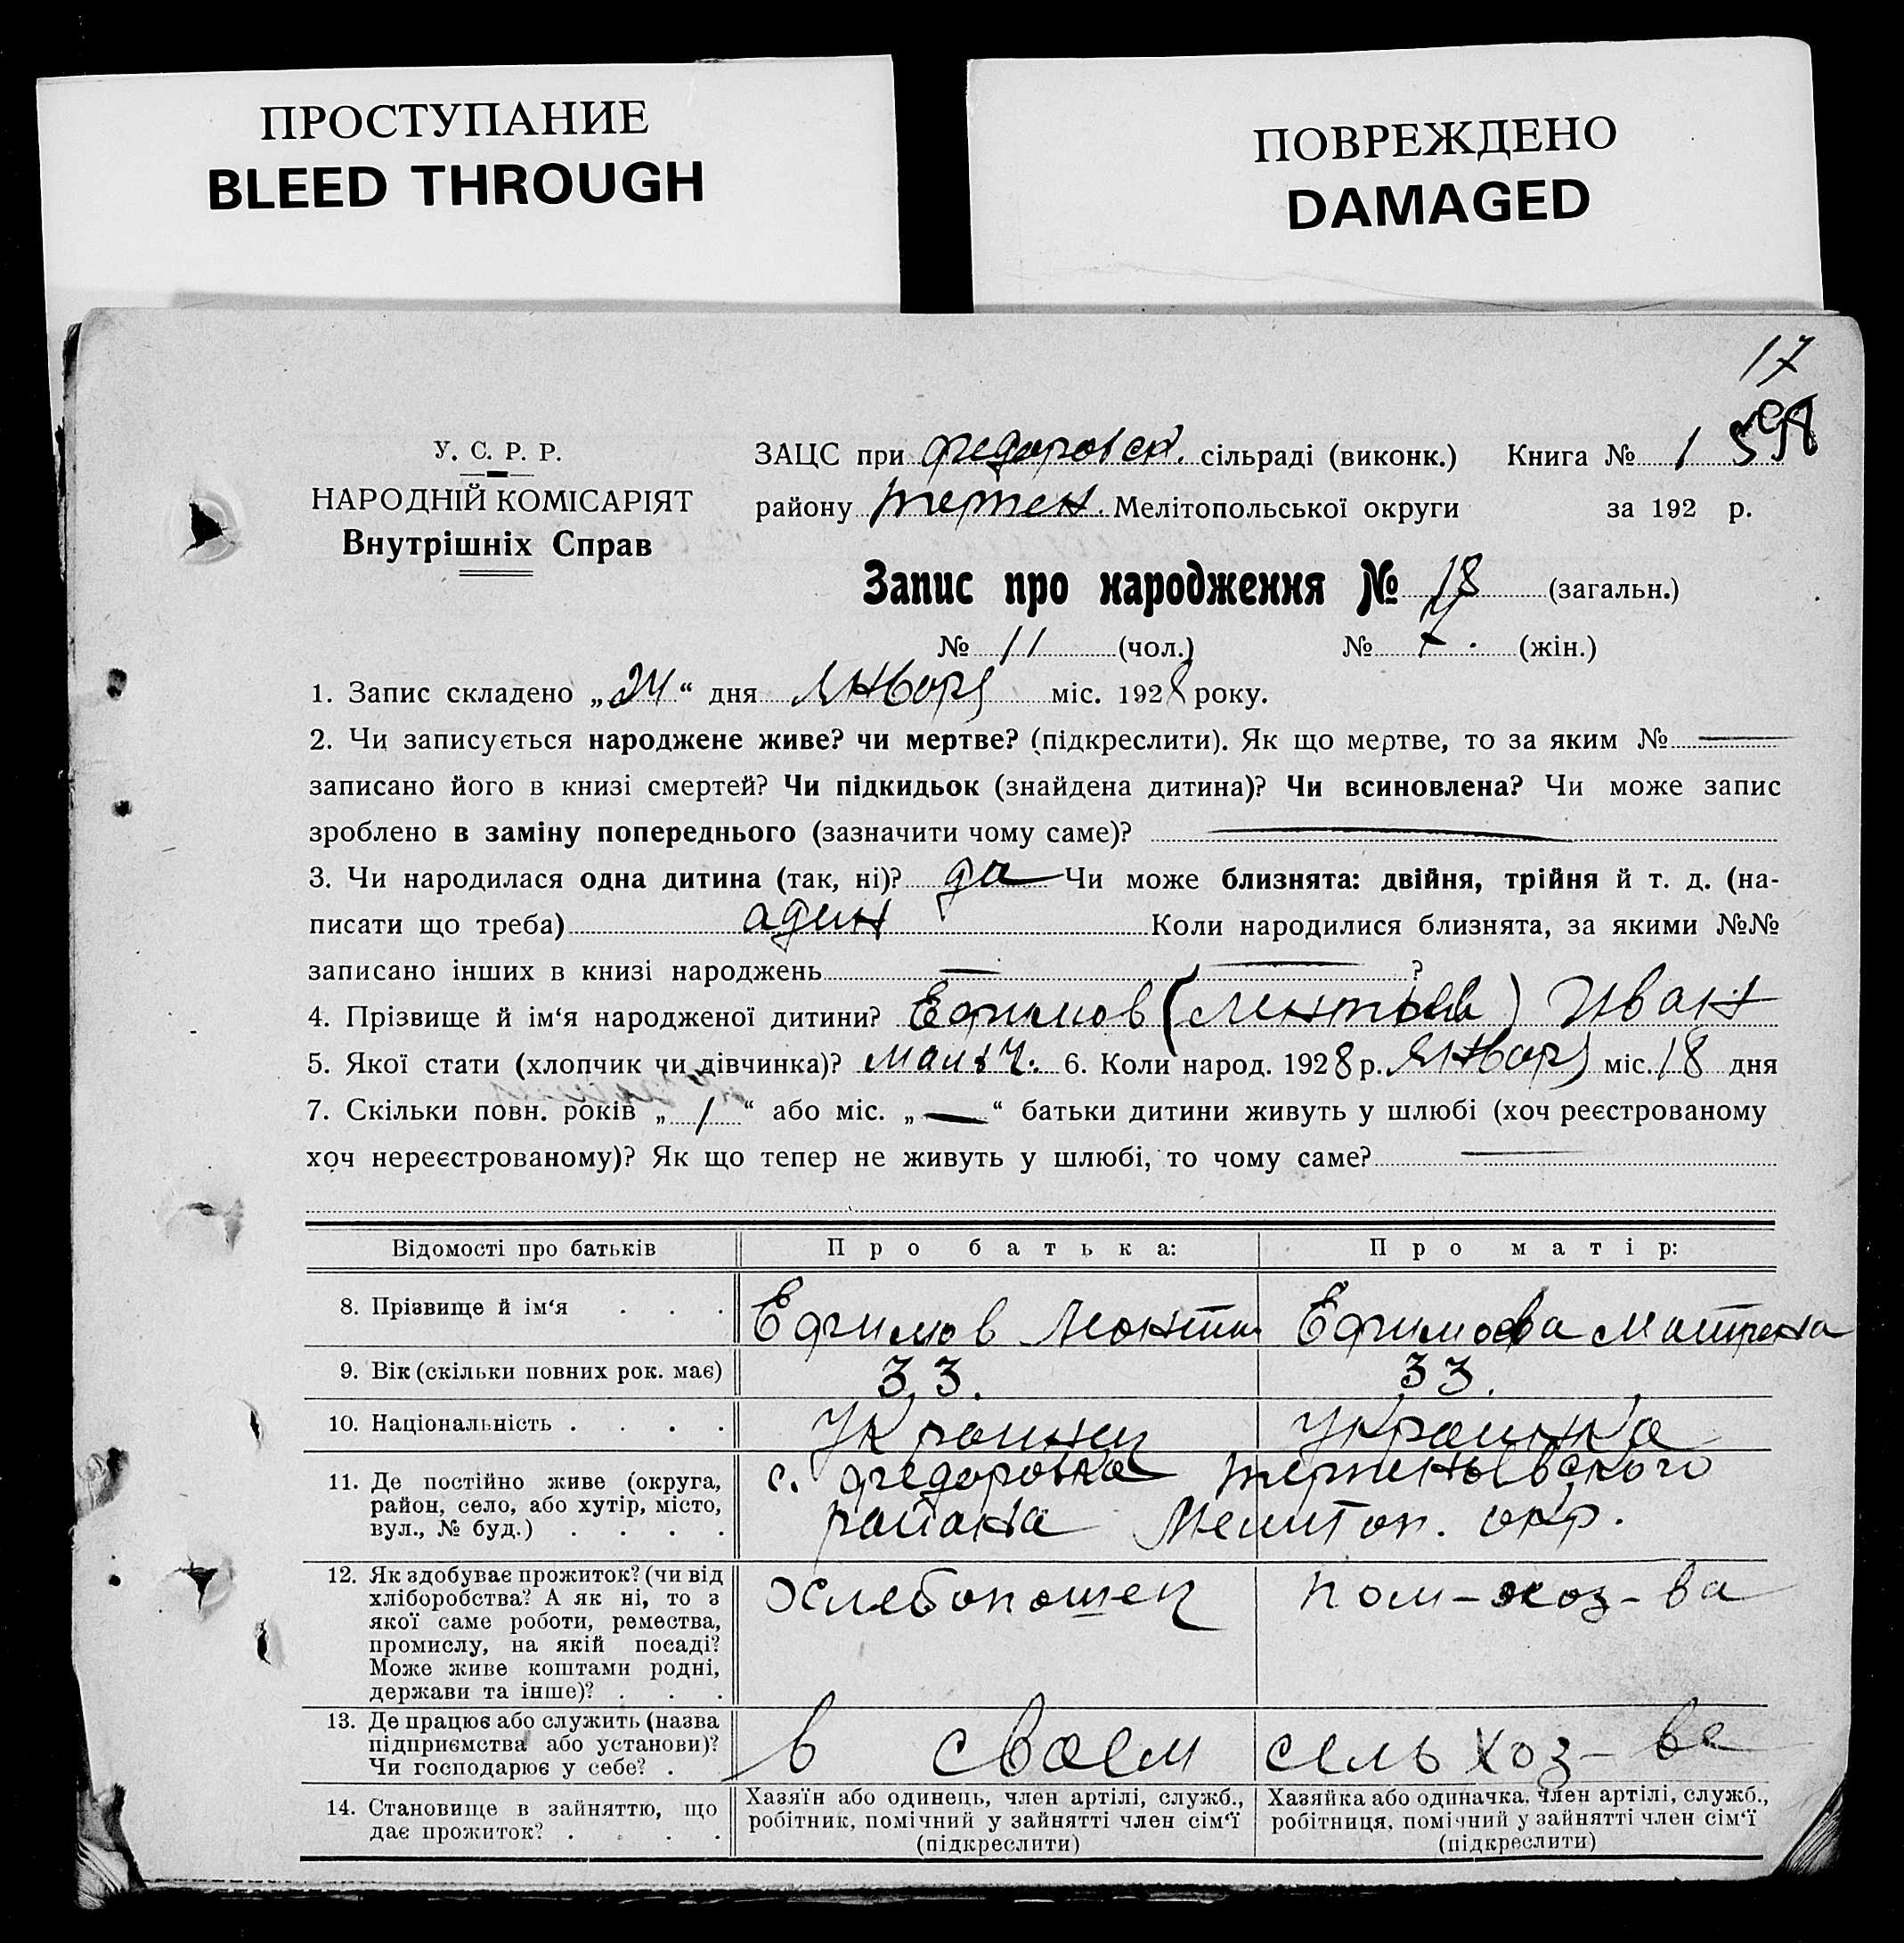 ПРОСТУПАНИЕ
BLEED THROUGH
ПОВРЕЖДЕНО
DAMAGED
17
У. С. Р. Р.
НАРОДНІЙ КОМІСАРІЯТ
Внутрішніх Справ
ЗАЦС при Федоровск. сільраді (виконк.) Книга № 1
району Терпен. Мелітопольської округи за 192 р.
Запис про народження № 18 (загальн.)
№ 11 (чол.) № (жін.)
1. Запис складено „24“ дня Января міс. 1928 року.
2. Чи записується народжене живе? чи мертве? (підкреслити). Як що мертве, то за яким № —
записано його в книзі смертей? Чи підкидьок (знайдена дитина)? Чи всиновлена? Чи може запис
зроблено в заміну попереднього (зазначити чому саме)? —
3. Чи народилася одна дитина (так, ні)? да Чи може близнята: двійня, трійня й т. д. (на-
писати що треба) адин Коли народилися близнята, за якими №№
записано інших в книзі народжень — — ?
4. Прізвище й ім‘я народженої дитини? Ефимов ( ) Иван
5. Якої стати (хлопчик чи дівчинка)? мальч. 6. Коли народ. 1928 р. Января міс. 18 дня
7. Скільки повн. років „ 1 “ або міс. „ — “ батьки дитини живуть у шлюбі (хоч реєстрованому
хоч нереєстрованому)? Як що тепер не живуть у шлюбі, то чому саме? —
Відомості про батьків Про батька: Про матір:
8. Прізвище й ім‘я . . . Ефимов Ефимова Матрена
9. Вік (скільки повних рок. має) 33. 33.
10. Національність . . . . Украинец Украинка
11. Де постійно живе (округа,
район, село, або хутір, місто,
вул., № буд.) . . . .
с. Федоровка Терпеньевского
района Мелитоп. окр.
12. Як здобуває прожиток? (чи від
хліборобства? А як ні, то з
якої саме роботи, ремества,
промислу, на якій посаді?
Може живе коштами родні,
держави та інше)? . . .
Хлебопошец пом-хоз-ва
13. Де працює або служить (назва
підприємства або установи)?
Чи господарює у себе? .
в своем сель хоз-ве
14. Становище в зайняттю, що
дає прожиток? . . . .
Хазяїн або одинець, член артілі, служб.,
робітник, помічний у зайнятті член сім‘ї
(підкреслити)
Хазяйка або одиначка. член артілі, служб.,
робітниця, помічний у зайнятті член сім‘ї
(підкреслити)